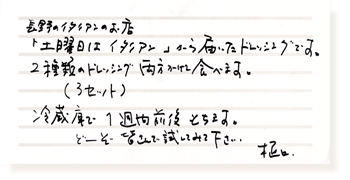 長野のイタリアンのお店
「土曜日はイタリアン」から届いたドレッシングです。
2種類のドレッシング両方かけて食べます。
(3セット)
冷蔵庫で1週間前後もちます。
どーぞ皆さんで試してみて下さい
堀口